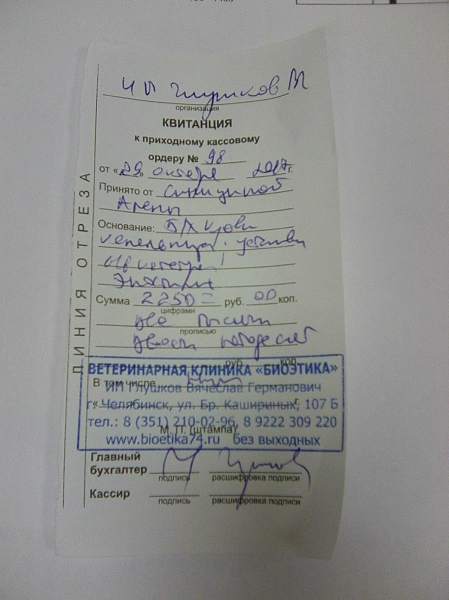 ЧП Глушков В
организация
КВИТАНЦИЯ
к приходному кассовому
ордеру № 98
от «29» октября 2017 г.
Принято от Синициной
Алены
Основание: Б/х крови
Сумма 2250= руб. 00 коп.
цифрами
две тысячи
прописью
двести пятьдесят
руб. коп.
ВЕТЕРИНАРНАЯ КЛИНИКА «БИОЭТИКА»
В том числе
ИП Глушков Вячеслав Германович
г. Челябинск, ул. Бр. Кашириных, 107 Б
тел.: 8 (351) 210-02-96, 8 9222 309 220
М. П. (штампа)
www.bioetika74.ru без выходных
Главный
бухгалтер
подпись расшифровка подписи
Кассир
подпись расшифровка подписи
ЛИНИЯ ОТРЕЗА